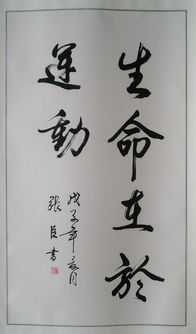 生命在於
運動
戊子年之月
張臣書